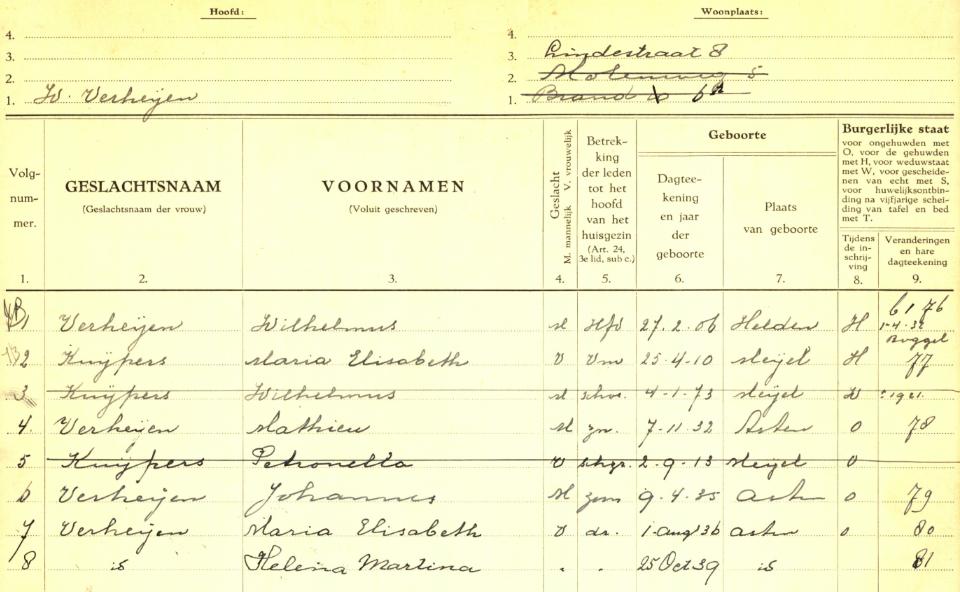 Hoofd: Woonplaats:
4. 4.
3. 3. Lindestraat 8
2. 2. Molenweg 5
1. W. Verheijen 1. Brand 6A
Volg-nummer. GESLACHTSNAAM (Geslachtsnaam der vrouw) VOORNAMEN (Voluit geschreven) Geslacht M. mannelijk V. vrouwelijk Betrekking der leden tot het hoofd van het huisgezin (Art. 24, 3e lid, sub c.) Geboorte Dagteekening en jaar der geboorte Plaats van geboorte Burgerlijke staat
voor ongehuwden met
O, voor de gehuwden
met H, voor weduwstaat
met W, voor gescheidenen van echt met S,
voor huwelijksontbinding na vijfjarige scheiding van tafel en bed
met T.
Tijdens de inschrijving Veranderingen en hare dagteekening
1. 2. 3. 4. 5. 6. 7. 8. 9.
1 Verheijen Wilhelmus M Hfd 27.2.06 Helden H 6176
2 Kuijpers Maria Elisabeth V Vrn 25-4-10 Meijel H 77
3 Kuijpers Wilhelmus M schv. 4-1-73 Meijel W 1921
4. Verheijen Mathieu M zn. 7-11-32 Asten O 78
5 Kuijpers Petronella V schzr. 2-9-13 Meijel O
6 Verheijen Johannes M zoon 9.4.35 Asten O 79
7 Verheijen Maria Elisabeth V dr. 1-aug 36 Asten O 80
8 id Helena Martina " " 25 Oct 39 id 81